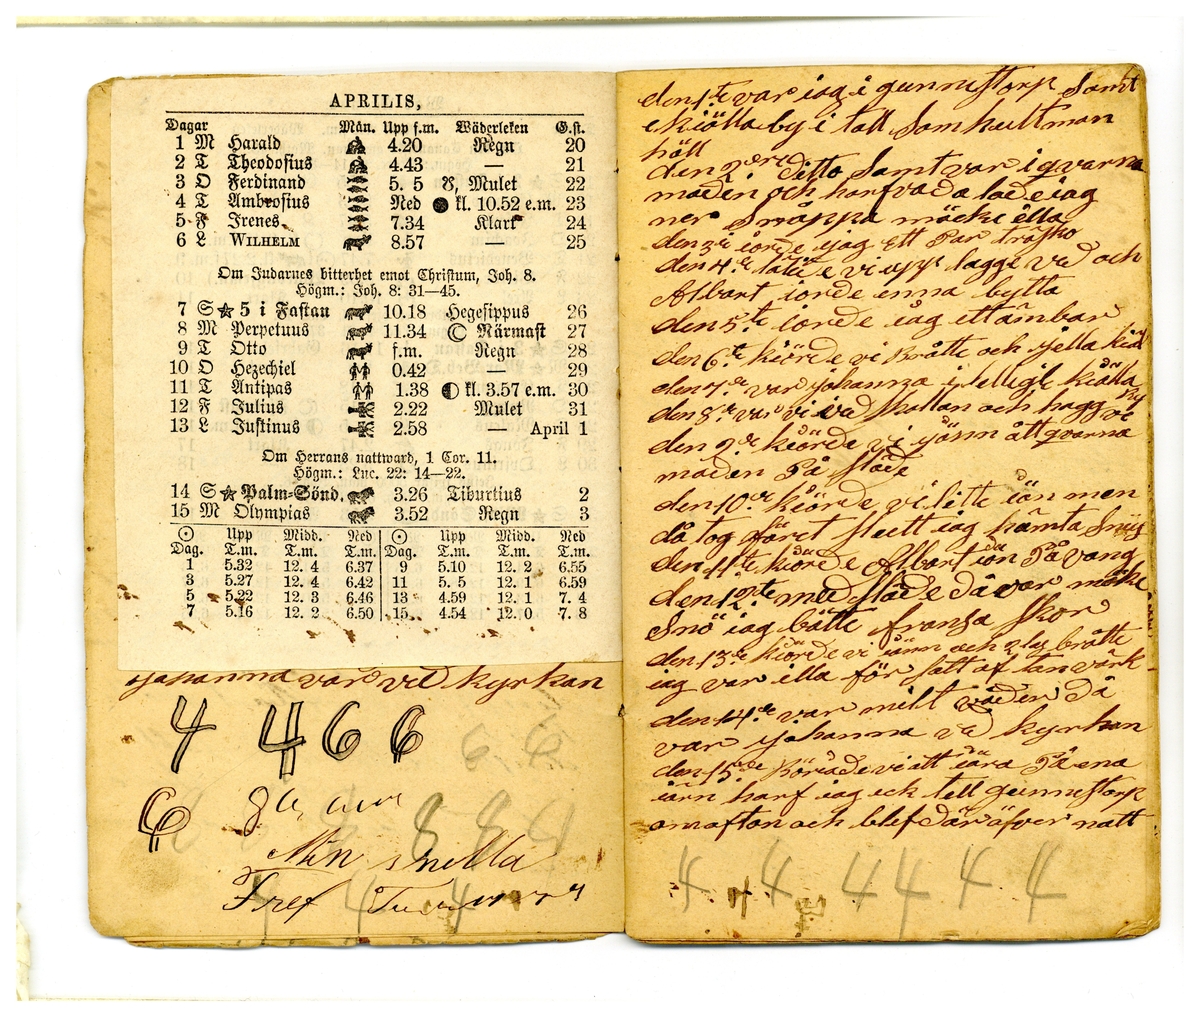 APRILIS,
Dagar Mån. Upp f.m. Wäderleken G.st.
1 M Harald 4.20 Regn 20
2 T Theodosius 4.43 — 21
3 O Ferdinand 5. 5 Mulet 22
4 T Ambrosius Ned ● kl. 10.52 e.m. 23
5 F Irenes 7.34 Klart 24
6 L WILHELM 8.57 — 25
Om Judarnes bitterhet emot Christum, Joh. 8.
Högm.: Joh. 8: 31—45.
7 S ☆ 5 i Fastan 10.18 Hegesippus 26
8 M Perpetuus 11.34 ☾ Närmast 27
9 T Otto f.m. Regn 28
10 O Hezechiel 0.42 — 29
11 T Antipas 1.38 ◐ kl. 3.57 e.m. 30
12 F Julius 2.22 Mulet 31
13 L Justinus 2.58 — April 1
Om Herrans nattward, 1 Cor. 11.
Högm.: Luc. 22: 14—22.
14 S ☆ Palm=Sönd. 3.26 Tiburtius 2
15 M Olympias 3.52 Regn 3
☉ Upp Midd. Ned ☉ Upp Midd. Ned
Dag. T.m. T.m. T.m. Dag. T.m. T.m. T.m.
1 5.32 12. 4 6.37 9 5.10 12. 2 6.55
3 5.27 12. 4 6.42 11 5. 5 12. 1 6.59
5 5.22 12. 3 6.46 13 4.59 12. 1 7. 4
7 5.16 12. 2 6.50 15 4.54 12. 0 7. 8
johanna var ved kyrkan
4 4 6 6 6 6
6 8 8 4
Min snella
Fref
den 1te var iag i gunnestorp Samt
ekiöllaby i tall Som hultman
höll
den 2dre ditto Samt var i gvarna
maden och harfvada lade iag
ner Snöppa möcke ella
den 3je iorde ijag ett Par träsko
den 4de vi upp lagge ved och
Albart iorde enna bytta
den 5te iorde iag ett ämbar
den 6te kiörde vi Bråtte och
den 7de var johanna i kiölla
den 8de var vi ved skallan och hagg ve
den 9de kiörde vi jörn ått gvarna
maden På slade
den 10de kiörde vi litte iön men
då tog föret slutt iag hämta Snus
den 11te kiorde Albart iön På vang
den 12te med släde då var möcke
Snö iag bötte fransa skor
den 13de kiörde vi iönn och 2 lag bråtte
iag var ella för satt af tanvärk
den 14de var milt väder Då
var johanna ved kyrkan
den 15de Började vi att iära På ena
iärn harf iag eck tell gunnestorp
omafton och blef där öfver natt
4 4 4 4 4 4 4